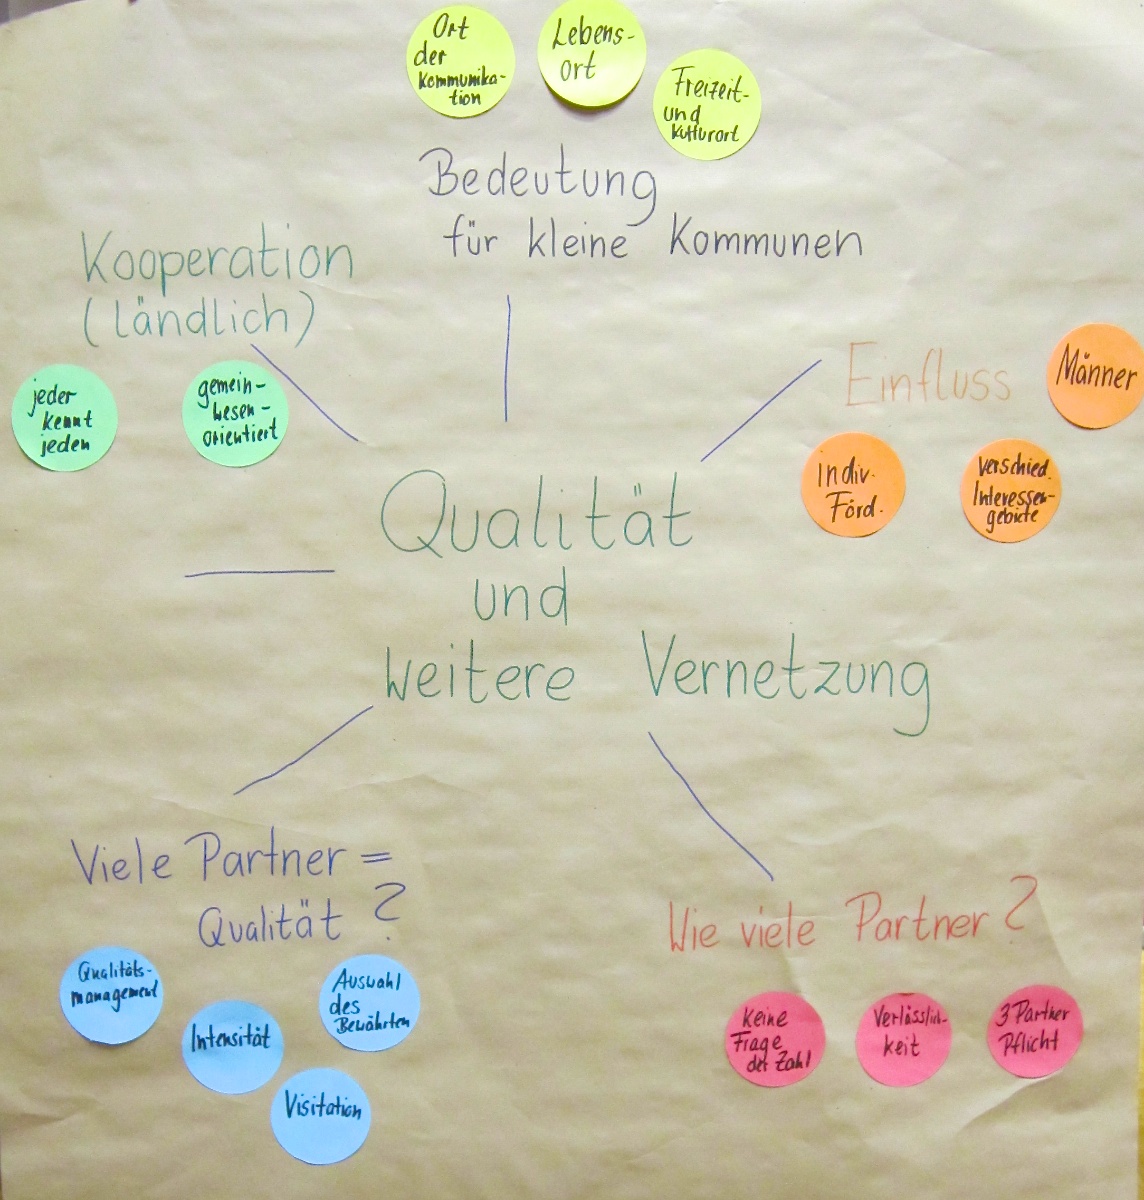 Ort
der
Kommunika-
tion
Lebens-
ort
Freizeit-
und
Kulturort
Bedeutung
für kleine Kommunen
Kooperation
(ländlich)
jeder
kennt
jeden
gemein-
wesen-
orientiert
Einfluss
Männer
Indiv.
Förd.
verschied.
Interessen-
gebiete
Qualität
und
weitere Vernetzung
Viele Partner =
Qualität ?
Qualitäts-
management
Intensität
Auswahl
des
Bewährten
Visitation
Wie viele Partner ?
keine
Frage
der Zahl
Verlässlich-
keit
3 Partner
Pflicht